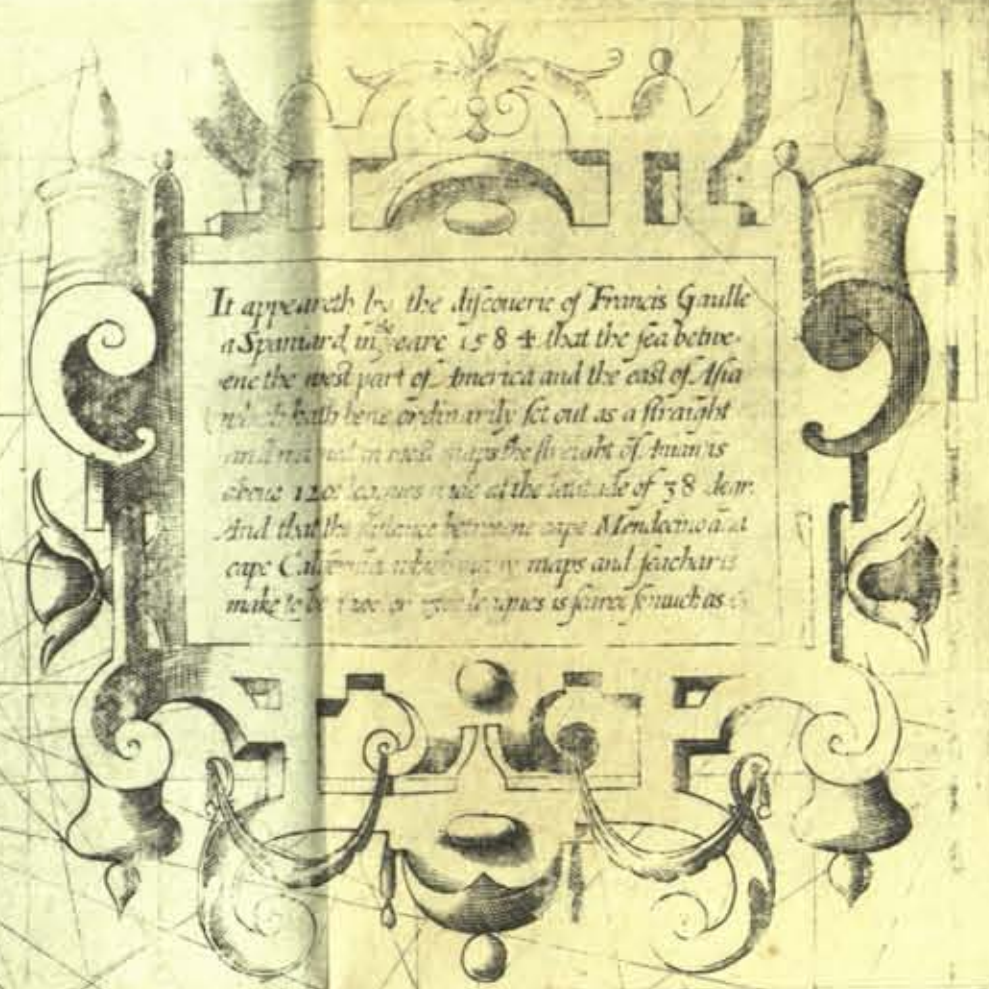 It appeareth by the discouerie of Francis Gaulle
a Spaniard in the yeare 1584 that the sea betwe-
ene the west part of America and the east of Asia
which hath bene ordinarily set out as a straight
and named in most maps the streight of Anian is
aboue 1200 leagues wide at the latitude of 38 degr.
And that the distance betweene cape Mendocino and
cape California which many maps and seachartes
make to be 1200 or leagues is scarce somuch as